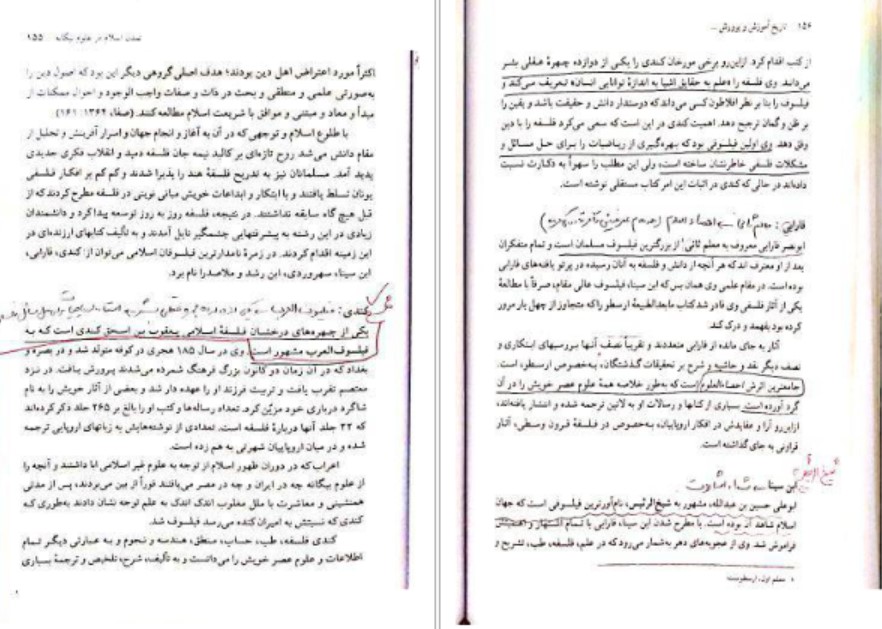 تمدن اسلام در علوم بیگانه ۱۵۵
اکثراً مورد اعتراض اهل دین بودند؛ هدف اصلی گروهی دیگر این بود که اصول دین را
به‌صورتی علمی و منطقی و بحث در ذات و صفات واجب الوجود و احوال ممکنات از
مبدأ و معاد و مبتنی و موافق با شریعت اسلام مطالعه کنند. (صفا، ۱۳۶۴: ۱۶۱)
با طلوع اسلام و توجهی که در آن به آغاز و انجام جهان و اسرار آفرینش و تجلیل از
مقام دانش می‌شد روح تازه‌ای بر کالبد نیمه جان فلسفه دمید و انقلاب فکری جدیدی
پدید آمد. مسلمانان نیز به تدریج فلسفهٔ هند را پذیرا شدند و کم کم بر افکار فلسفی
یونان تسلط یافتند و با ابتکار و ابداعات خویش مبانی نوینی در فلسفه مطرح کردند که از
قبل هیچ گاه سابقه نداشتند. در نتیجه، فلسفه روز به روز توسعه پیدا کرد و دانشمندان
زیادی در این رشته به پیشرفتهایی چشمگیر نایل آمدند و به تألیف کتابهای ارزنده‌ای در
این زمینه اقدام کردند. در زمرهٔ نامدارترین فیلسوفان اسلامی می‌توان از: کندی، فارابی،
ابن سینا، سهروردی، ابن رشد و ملاصدرا نام برد.
کندی:
یکی از چهره‌های درخشان فلسفهٔ اسلامی یعقوب بن اسحق کندی است که به
فیلسوف‌العرب مشهور است. وی در سال ۱۸۵ هجری در کوفه متولد شد و در بصره و
بغداد که در آن زمان دو کانون بزرگ فرهنگ شمرده می‌شدند پرورش یافت. در نزد
معتصم تقرب یافت و تربیت فرزند او را عهده دار شد و بعضی از آثار خویش را به نام
شاگرد درباری خود مزیّن کرد. تعداد رساله‌ها و کتب او را بالغ بر ۲۶۵ جلد ذکر کرده‌اند
که ۲۲ جلد آنها دربارهٔ فلسفه است. تعدادی از نوشته‌هایش به زبانهای اروپایی ترجمه
شده و در میان اروپاییان شهرتی به هم زده است.
اعراب که در دوران ظهور اسلام از توجه به علوم غیر اسلامی ابا داشتند و آنچه را
از علوم بیگانه چه در ایران و چه در مصر می‌یافتند فوراً از بین می‌بردند، پس از مدتی
همنشینی و معاشرت با ملل مغلوب اندک اندک به علم توجه نشان دادند به‌طوری که
کندی که نسبتش به امیران کنده می‌رسد فیلسوف شد.
کندی فلسفه، طب، حساب، منطق، هندسه و نجوم و به عبارتی دیگر تمام
اطلاعات و علوم عصر خویش را می‌دانست و به تألیف، شرح، تلخیص و ترجمهٔ بسیاری
۱۵۶ تاریخ آموزش و پرورش ...
از کتب اقدام کرد. ازاین‌رو برخی مورخان کندی را یکی از دوازده چهرهٔ عقلی بشر
می‌دانند. وی فلسفه را «علم به حقایق اشیا به اندازهٔ توانایی انسان» تعریف می‌کند و
فیلسوف را بنا بر نظر افلاطون کسی می‌داند که دوستدار دانش و حقیقت باشد و یقین را
بر ظن و گمان ترجیح دهد. اهمیت کندی در این است که سعی می‌کرد فلسفه را با دین
وفق دهد. وی اولین فیلسوفی بود که بهره‌گیری از ریاضیات را برای حل مسائل و
مشکلات فلسفی خاطرنشان ساخته است، ولی این مطلب را سهواً به دکارت نسبت
داده‌اند در حالی که کندی در اثبات این امر کتاب مستقلی نوشته است.
فارابی:
ابونصر فارابی معروف به معلم ثانی¹ از بزرگترین فیلسوف مسلمان است و تمام متفکران
بعد از او معترف اند که هر آنچه از دانش و فلسفه به آنان رسیده در پرتو یافته‌های فارابی
بوده است. در مقام علمی وی همان بس که ابن سینا، فیلسوف عالی مقام، صرفاً با مطالعهٔ
یکی از آثار فلسفی وی قادر شد کتاب مابعدالطبیعهٔ ارسطو را که متجاوز از چهل بار مرور
کرده بود بفهمد و درک کند.
آثار به جای مانده از فارابی متعددند و تقریباً نصف آنها بررسیهای ابتکاری و
نصف دیگر نقد و حاشیه و شرح بر تحقیقات گذشتگان، به‌خصوص ارسطو، است.
جامعترین اثرش احصاءالعلوم است که به‌طور خلاصه همهٔ علوم عصر خویش را در آن
گرد آورده است. بسیاری از کتابها و رسالات او به لاتین ترجمه شده و انتشار یافته‌اند،
ازاین‌رو آرا و عقایدش در افکار اروپاییان، به‌خصوص در فلسفهٔ قرون وسطی، آثار
فراوانی به جای گذاشته است.
شیخ الرئیس
ابن سینا
ابوعلی حسین بن عبدالله، مشهور به شیخ‌الرئیس، نام‌آورترین فیلسوفی است که جهان
اسلام شاهد آن بوده است. با مطرح شدن ابن سینا، فارابی با تمام اشتهار و اهمیتش
فراموش شد. وی از عجوبه‌های دهر به‌شمار می‌رود که در علم، فلسفه، طب، تشریح و
۱ معلم اول، ارسطوست.